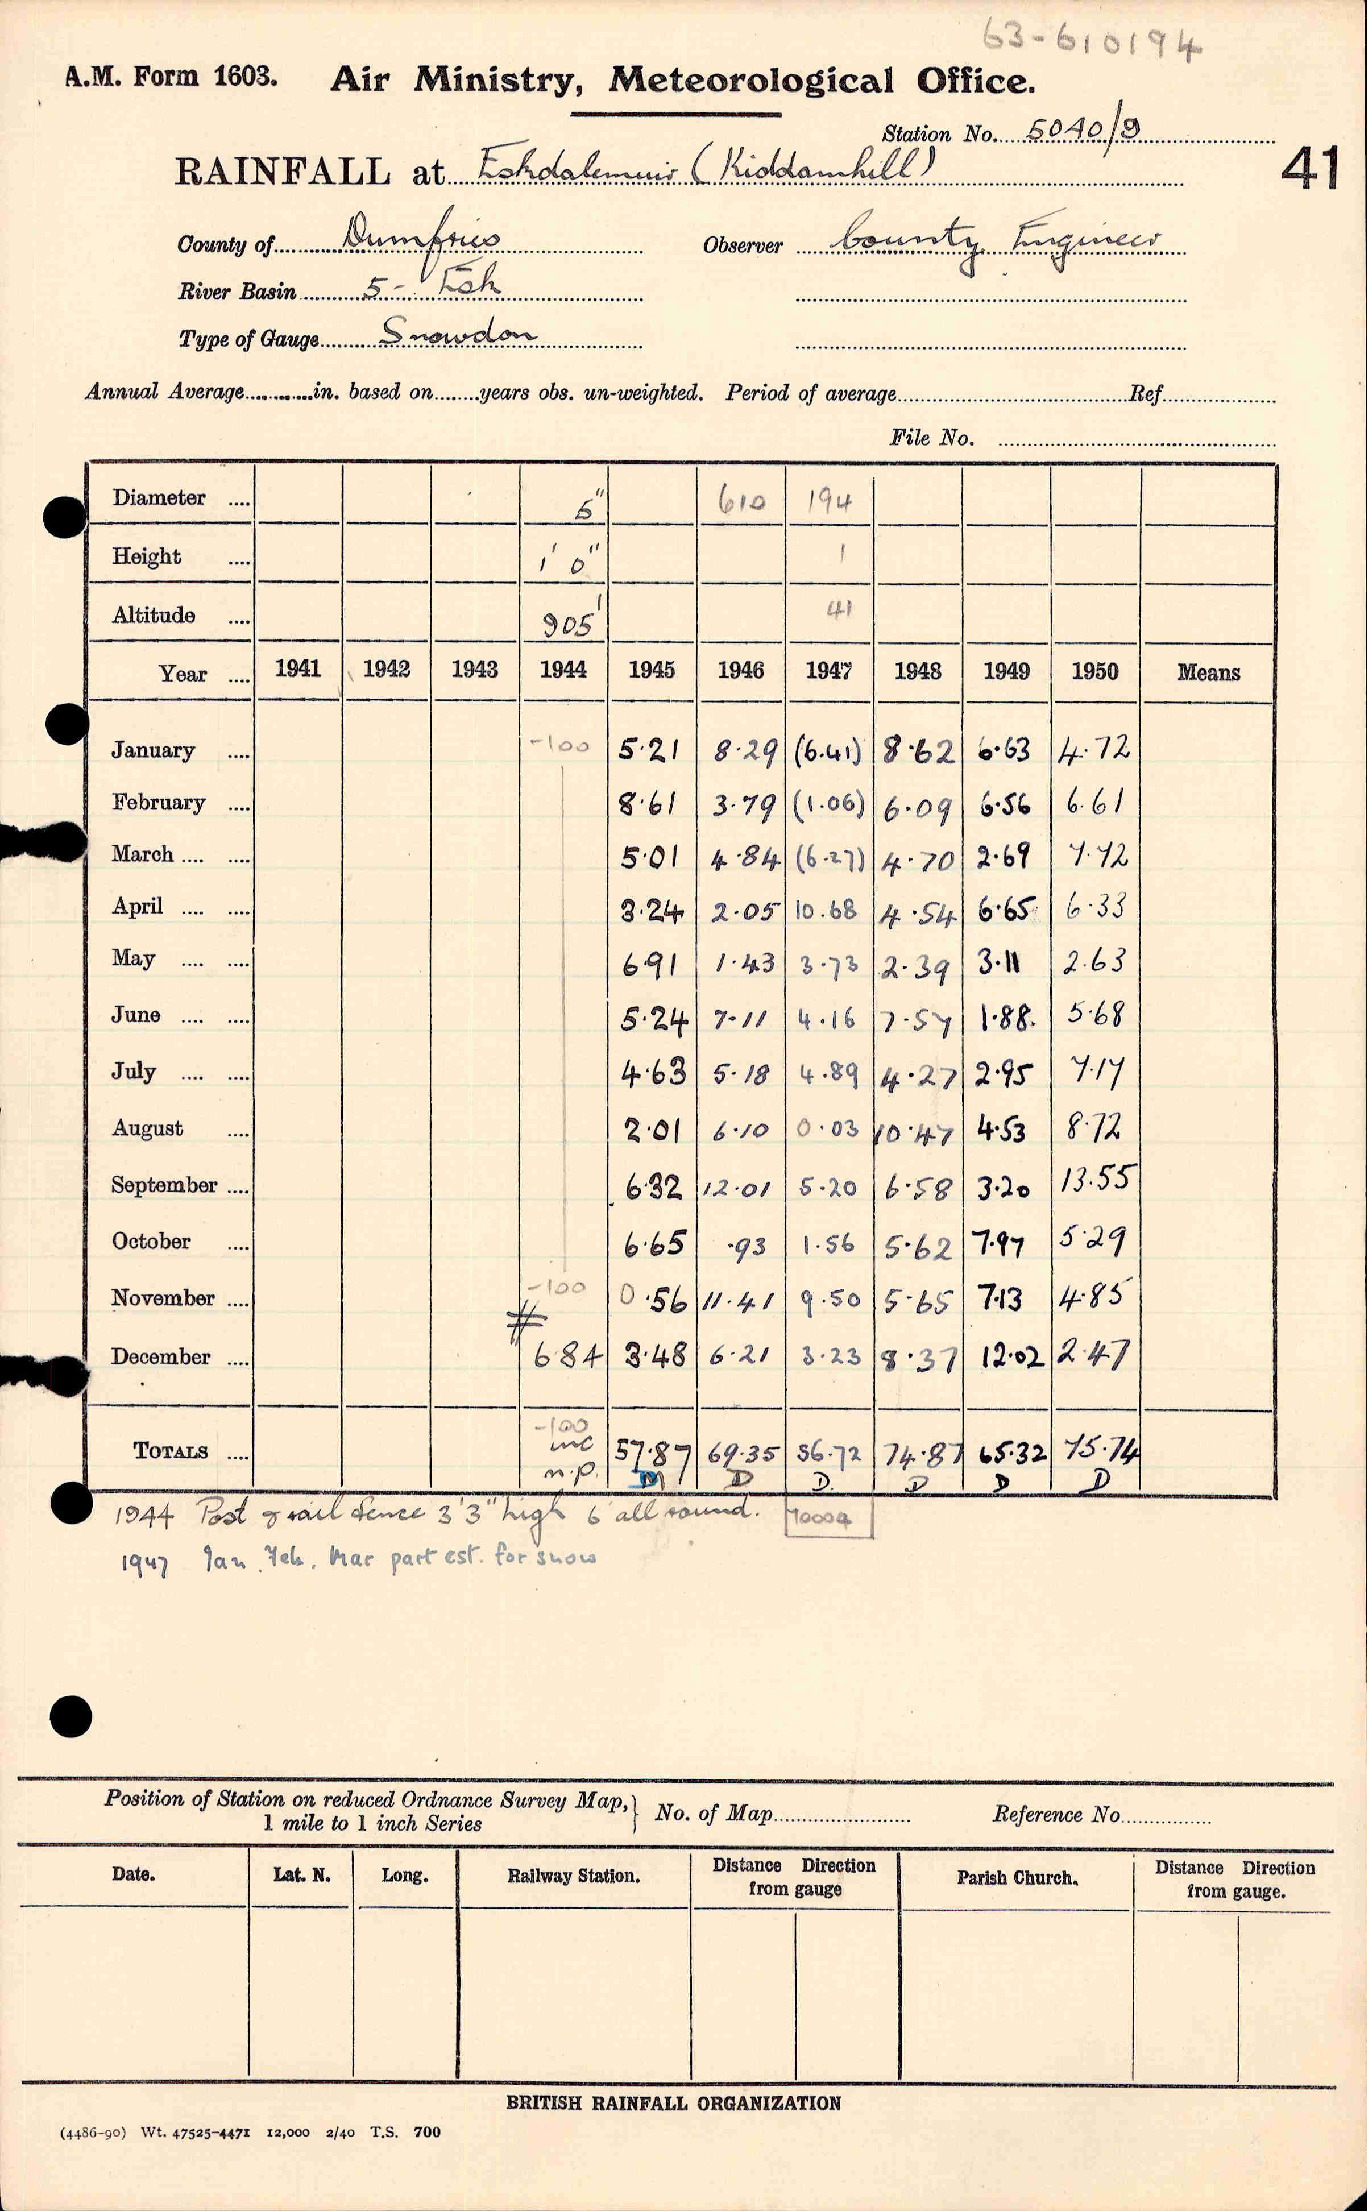 63-610194
A.M. Form 1603. Air Ministry, Meteorological Office.
Station No. 5040/9
RAINFALL at Eskdalemuir (Kiddamhill)
41
County of Dumfries Observer County Engineer
River Basin 5- Esk
Type of Gauge Snowdon
Annual Average............in. based on........years obs. un-weighted. Period of average........ Ref........
File No. ........
Diameter .... 5" 610 194
Height .... 1' 0" 1
Altitude .... 905' 41
Year .... 1941 1942 1943 1944 1945 1946 1947 1948 1949 1950 Means
January .... -100 5.21 8.29 (6.41) 8.62 6.63 4.72
February .... 8.61 3.79 (1.06) 6.09 6.56 6.61
March .... .... 5.01 4.84 (6.27) 4.70 2.69 7.72
April .... .... 3.24 2.05 10.68 4.54 6.65 6.33
May .... .... 6.91 1.43 3.73 2.39 3.11 2.63
June .... .... 5.24 7.11 4.16 7.57 1.88. 5.68
July .... .... 4.63 5.18 4.89 4.27 2.95 7.17
August .... 2.01 6.10 0.03 10.47 4.53 8.72
September .... 6.32 12.01 5.20 6.58 3.20 13.55
October .... 6.65 .93 1.56 5.62 7.97 5.29
November .... -100 0.56 11.41 9.50 5.65 7.13 4.85
December .... # 6.84 3.48 6.21 3.23 8.37 12.02 2.47
TOTALS .... -100 inc n.p. 57.87 69.35 56.72 74.87 65.32 75.74
M D D. D D D
1944 Post & rail fence 3'3" high 6' all round.
1947 Jan. Feb. Mar part est. for snow
Position of Station on reduced Ordnance Survey Map, 1 mile to 1 inch Series } No. of Map........ Reference No........
Date. Lat. N. Long. Railway Station. Distance Direction from gauge Parish Church. Distance Direction from gauge.
BRITISH RAINFALL ORGANIZATION
(4486-90) Wt. 47525-4471 12,000 2/40 T.S. 700